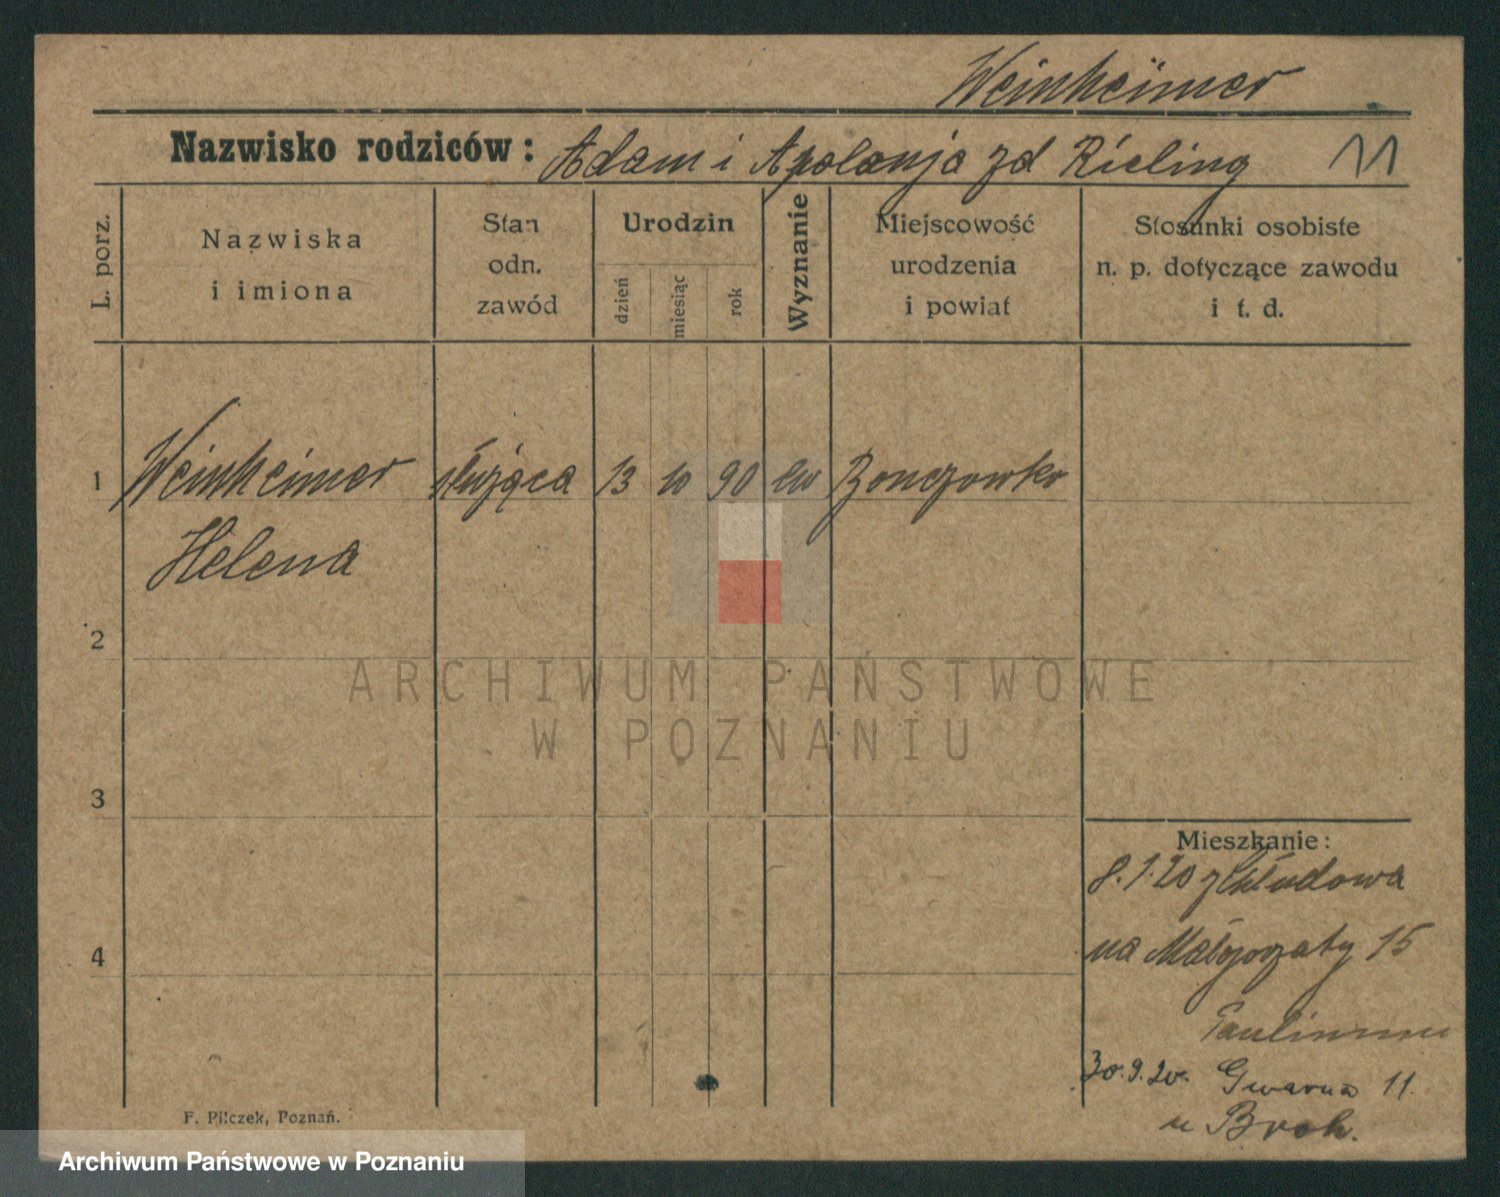 Weinheimer
Nazwisko rodziców: Adam i Apolonja zd Rieling 11
L. porz.
Nazwiska
i imiona
Stan
odn.
zawód
Urodzin
dzień
miesiąc
rok
Wyznanie
Miejscowość
urodzenia
i powiat
Stosunki osobiste
n. p. dotyczące zawodu
i t. d.
1 Weinheimer służąca 13 10 90 ew
Helena
2
3
4
Mieszkanie:
8.1.20 z Chludowa
na Małgorzaty 15
30.9.20. Gwarna 11.
u Broh.
F. Pilczek, Poznań.
ARCHIWUM PAŃSTWOWE
W POZNANIU
Archiwum Państwowe w Poznaniu